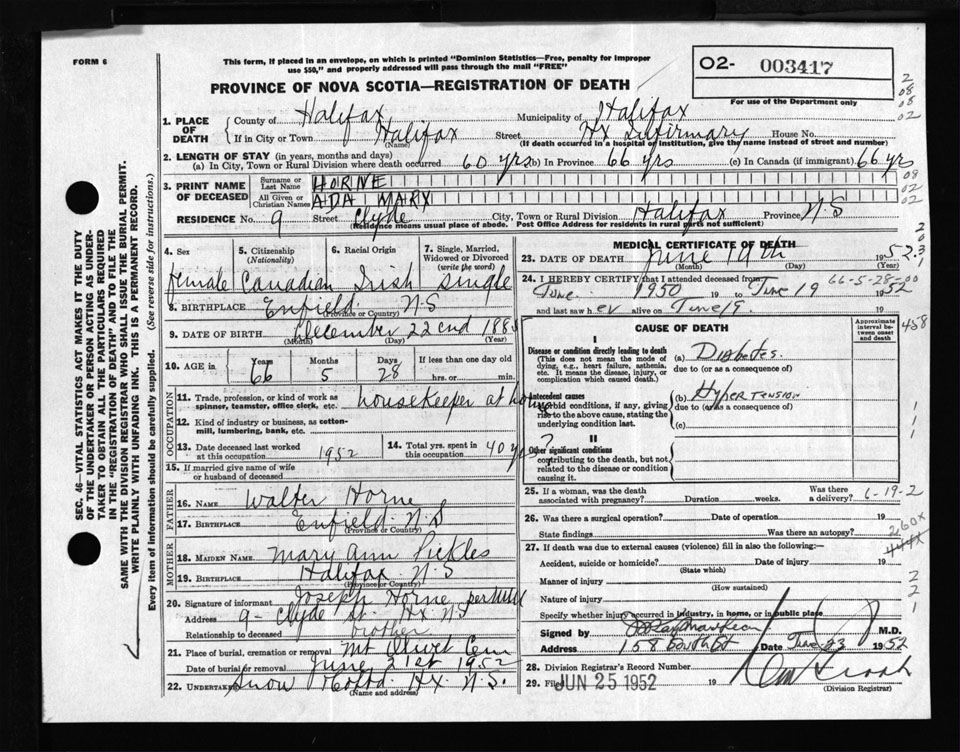 FORM 6
This form, if placed in an envelope, on which is printed "Dominion Statistics—Free, penalty for improper
use $50," and properly addressed will pass through the mail "FREE"
02- 003417
For use of the Department only
PROVINCE OF NOVA SCOTIA—REGISTRATION OF DEATH
1. PLACE OF DEATH
County of Halifax Municipality of Halifax
If in City or Town Halifax Street Hx Infirmary House No.
(Name) (If death occurred in a hospital or institution, give the name instead of street and number)
2. LENGTH OF STAY (in years, months and days)
(a) In City, Town or Rural Division where death occurred 60 yrs (b) In Province 66 yrs (c) In Canada (if immigrant) 66 yrs
3. PRINT NAME OF DECEASED
Surname or Last Name HORNE
All Given or Christian Names ADA MARY
RESIDENCE No. 9 Street Clyde City, Town or Rural Division Halifax Province N S
(Residence means usual place of abode. Post Office Address for residents in rural parts not sufficient)
4. Sex Female
5. Citizenship (Nationality) Canadian
6. Racial Origin Irish
7. Single, Married, Widowed or Divorced (write the word) single
8. BIRTHPLACE Enfield N S
(Province or Country)
9. DATE OF BIRTH December 22nd 188
(Month) (Day) (Year)
10. AGE in Years 66 Months 5 Days 28 If less than one day old hrs. or min.
OCCUPATION
11. Trade, profession, or kind of work as spinner, teamster, office clerk, etc. housekeeper at home
12. Kind of industry or business, as cotton-mill, lumbering, bank, etc.
13. Date deceased last worked at this occupation 1952
14. Total yrs. spent in this occupation 40 yrs
15. If married give name of wife or husband of deceased
FATHER
16. NAME Walter Horne
17. BIRTHPLACE Enfield N S
(Province or Country)
MOTHER
18. MAIDEN NAME Mary Ann Pickles
19. BIRTHPLACE Halifax N S
(Province or Country)
20. Signature of informant Joseph Horne per
Address 9- Clyde st. Hx N S
Relationship to deceased brother
21. Place of burial, cremation or removal Mt Olivet Cem
Date of burial or removal June 21st 1952
22. Undertaker Snow Hx. N.S.
(Name and address)
MEDICAL CERTIFICATE OF DEATH
23. DATE OF DEATH June 19th 1952
(Month) (Day) (Year)
24. I HEREBY CERTIFY that I attended deceased from 66-5-28-00
June 1950 19 to June 19 1952
and last saw h er alive on June 19. 19
CAUSE OF DEATH
Approximate interval between onset and death
I
Disease or condition directly leading to death
(This does not mean the mode of dying, e.g., heart failure, asthenia, etc. It means the disease, injury, or complication which caused death.)
(a) Diabetes.
due to (or as a consequence of)
Antecedent causes
Morbid conditions, if any, giving rise to the above cause, stating the underlying condition last.
(b) Hypertension
due to (or as a consequence of)
(c)
II
Other significant conditions
contributing to the death, but not related to the disease or condition causing it.
?
25. If a woman, was the death associated with pregnancy? Duration weeks. Was there a delivery? 6-19-2
26. Was there a surgical operation? Date of operation 19
State findings Was there an autopsy?
260X
27. If death was due to external causes (violence) fill in also the following:—
Accident, suicide or homicide? Date of injury 19
(State which)
Manner of injury
(How sustained)
Nature of injury
Specify whether injury occurred in industry, in home, or in public place
Signed by M.D.
Address 158 South St Date June 23 1952
28. Division Registrar's Record Number
29. Filed JUN 25 1952 19
(Division Registrar)
2
08
08
02
08
02
02
2
0
3
1
458
1
1
1
2
2
1
SEC. 46—VITAL STATISTICS ACT MAKES IT THE DUTY
OF THE UNDERTAKER OR PERSON ACTING AS UNDER-
TAKER TO OBTAIN ALL THE PARTICULARS REQUIRED
IN THE "REGISTRATION OF DEATH" AND TO FILE THE
SAME WITH THE DIVISION REGISTRAR WHO SHALL ISSUE THE BURIAL PERMIT.
WRITE PLAINLY WITH UNFADING INK. THIS IS A PERMANENT RECORD.
Every item of information should be carefully supplied. (See reverse side for instructions.)